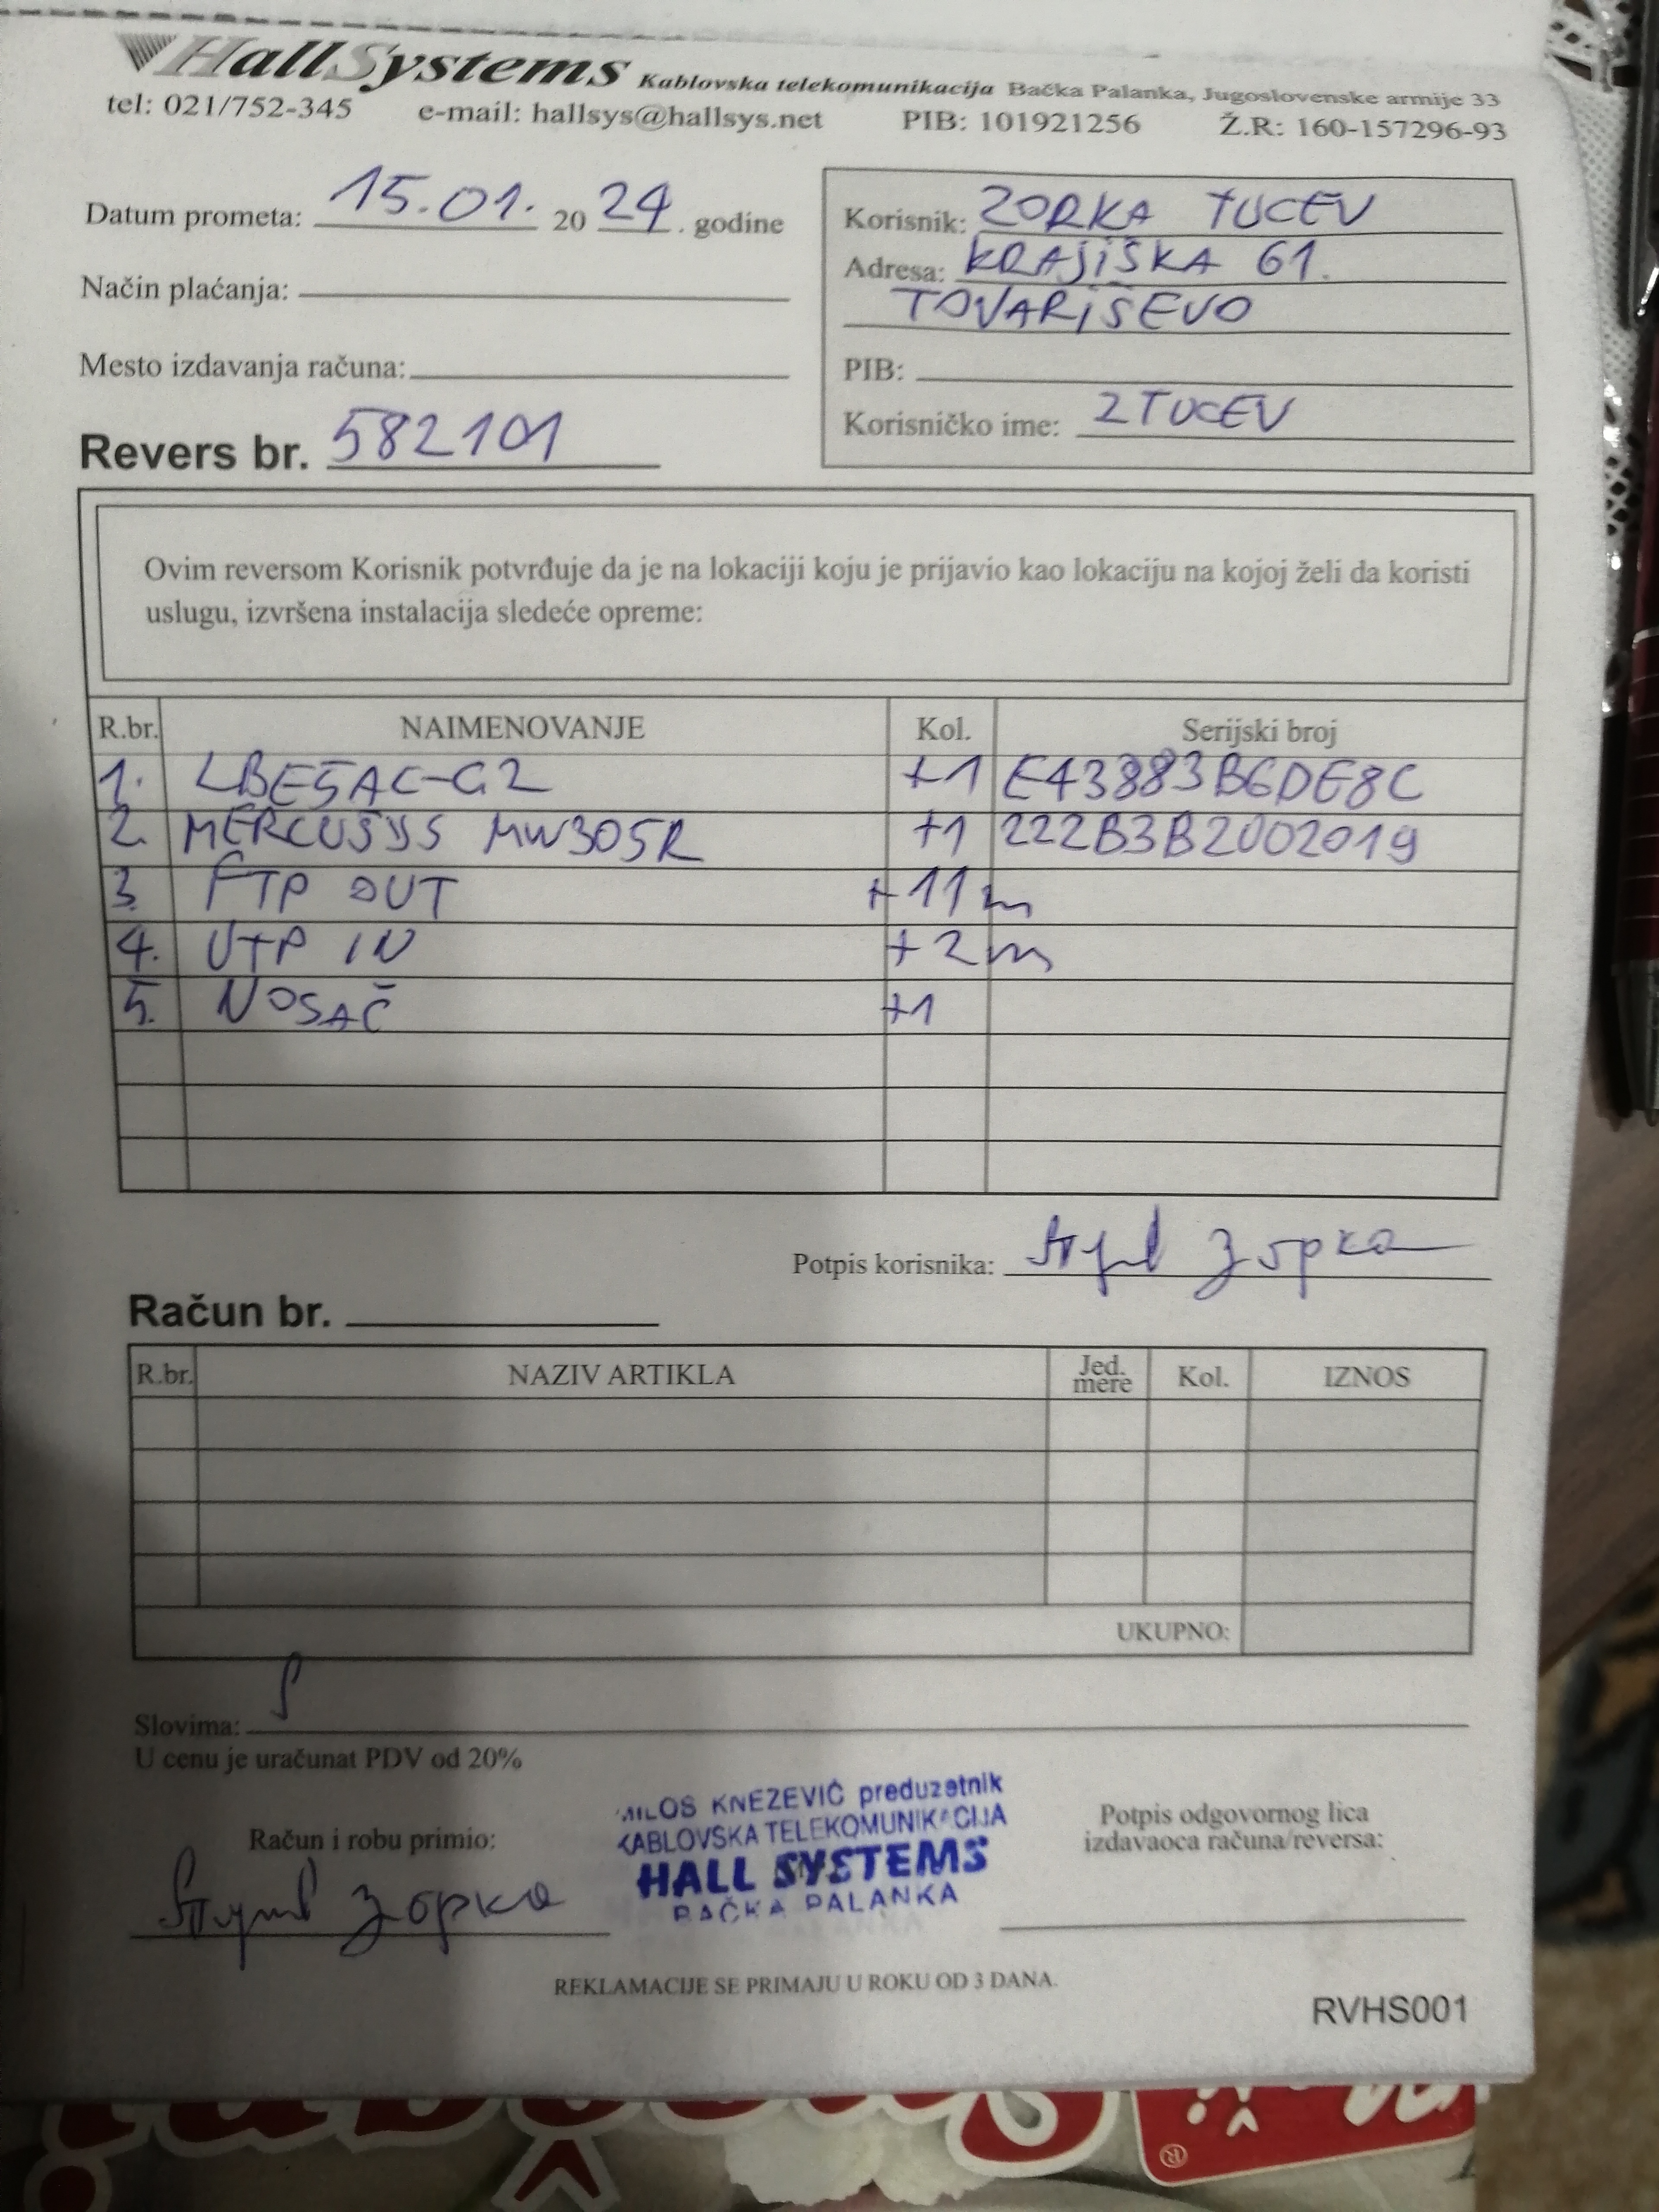 HallSystems Kablovska telekomunikacija Bačka Palanka, Jugoslovenske armije 33
tel: 021/752-345 e-mail: hallsys@hallsys.net PIB: 101921256 Ž.R: 160-157296-93
Datum prometa: 15.01. 20 24. godine
Način plaćanja:
Mesto izdavanja računa:
Revers br. 582101
Korisnik: ZORKA TUCEV
Adresa: KRAJIŠKA 61.
TOVARIŠEVO
PIB:
Korisničko ime: ZTUCEV
Ovim reversom Korisnik potvrđuje da je na lokaciji koju je prijavio kao lokaciju na kojoj želi da koristi
uslugu, izvršena instalacija sledeće opreme:
R.br. NAIMENOVANJE Kol. Serijski broj
1. LBE5AC-G2 +1 E43883B6DE8C
2. MERCUSYS MW305R +1 222B3B2002019
3. FTP OUT +11m
4. UTP IN +2m
5. NOSAČ +1
Potpis korisnika: Зорка
Račun br.
R.br. NAZIV ARTIKLA Jed. mere Kol. IZNOS
UKUPNO:
Slovima:
U cenu je uračunat PDV od 20%
MILOS KNEZEVIĆ preduzetnik
KABLOVSKA TELEKOMUNIKACIJA
HALL SYSTEMS
BAČKA PALANKA
Račun i robu primio:
Зорка
Potpis odgovornog lica
izdavaoca računa/reversa:
REKLAMACIJE SE PRIMAJU U ROKU OD 3 DANA.
RVHS001